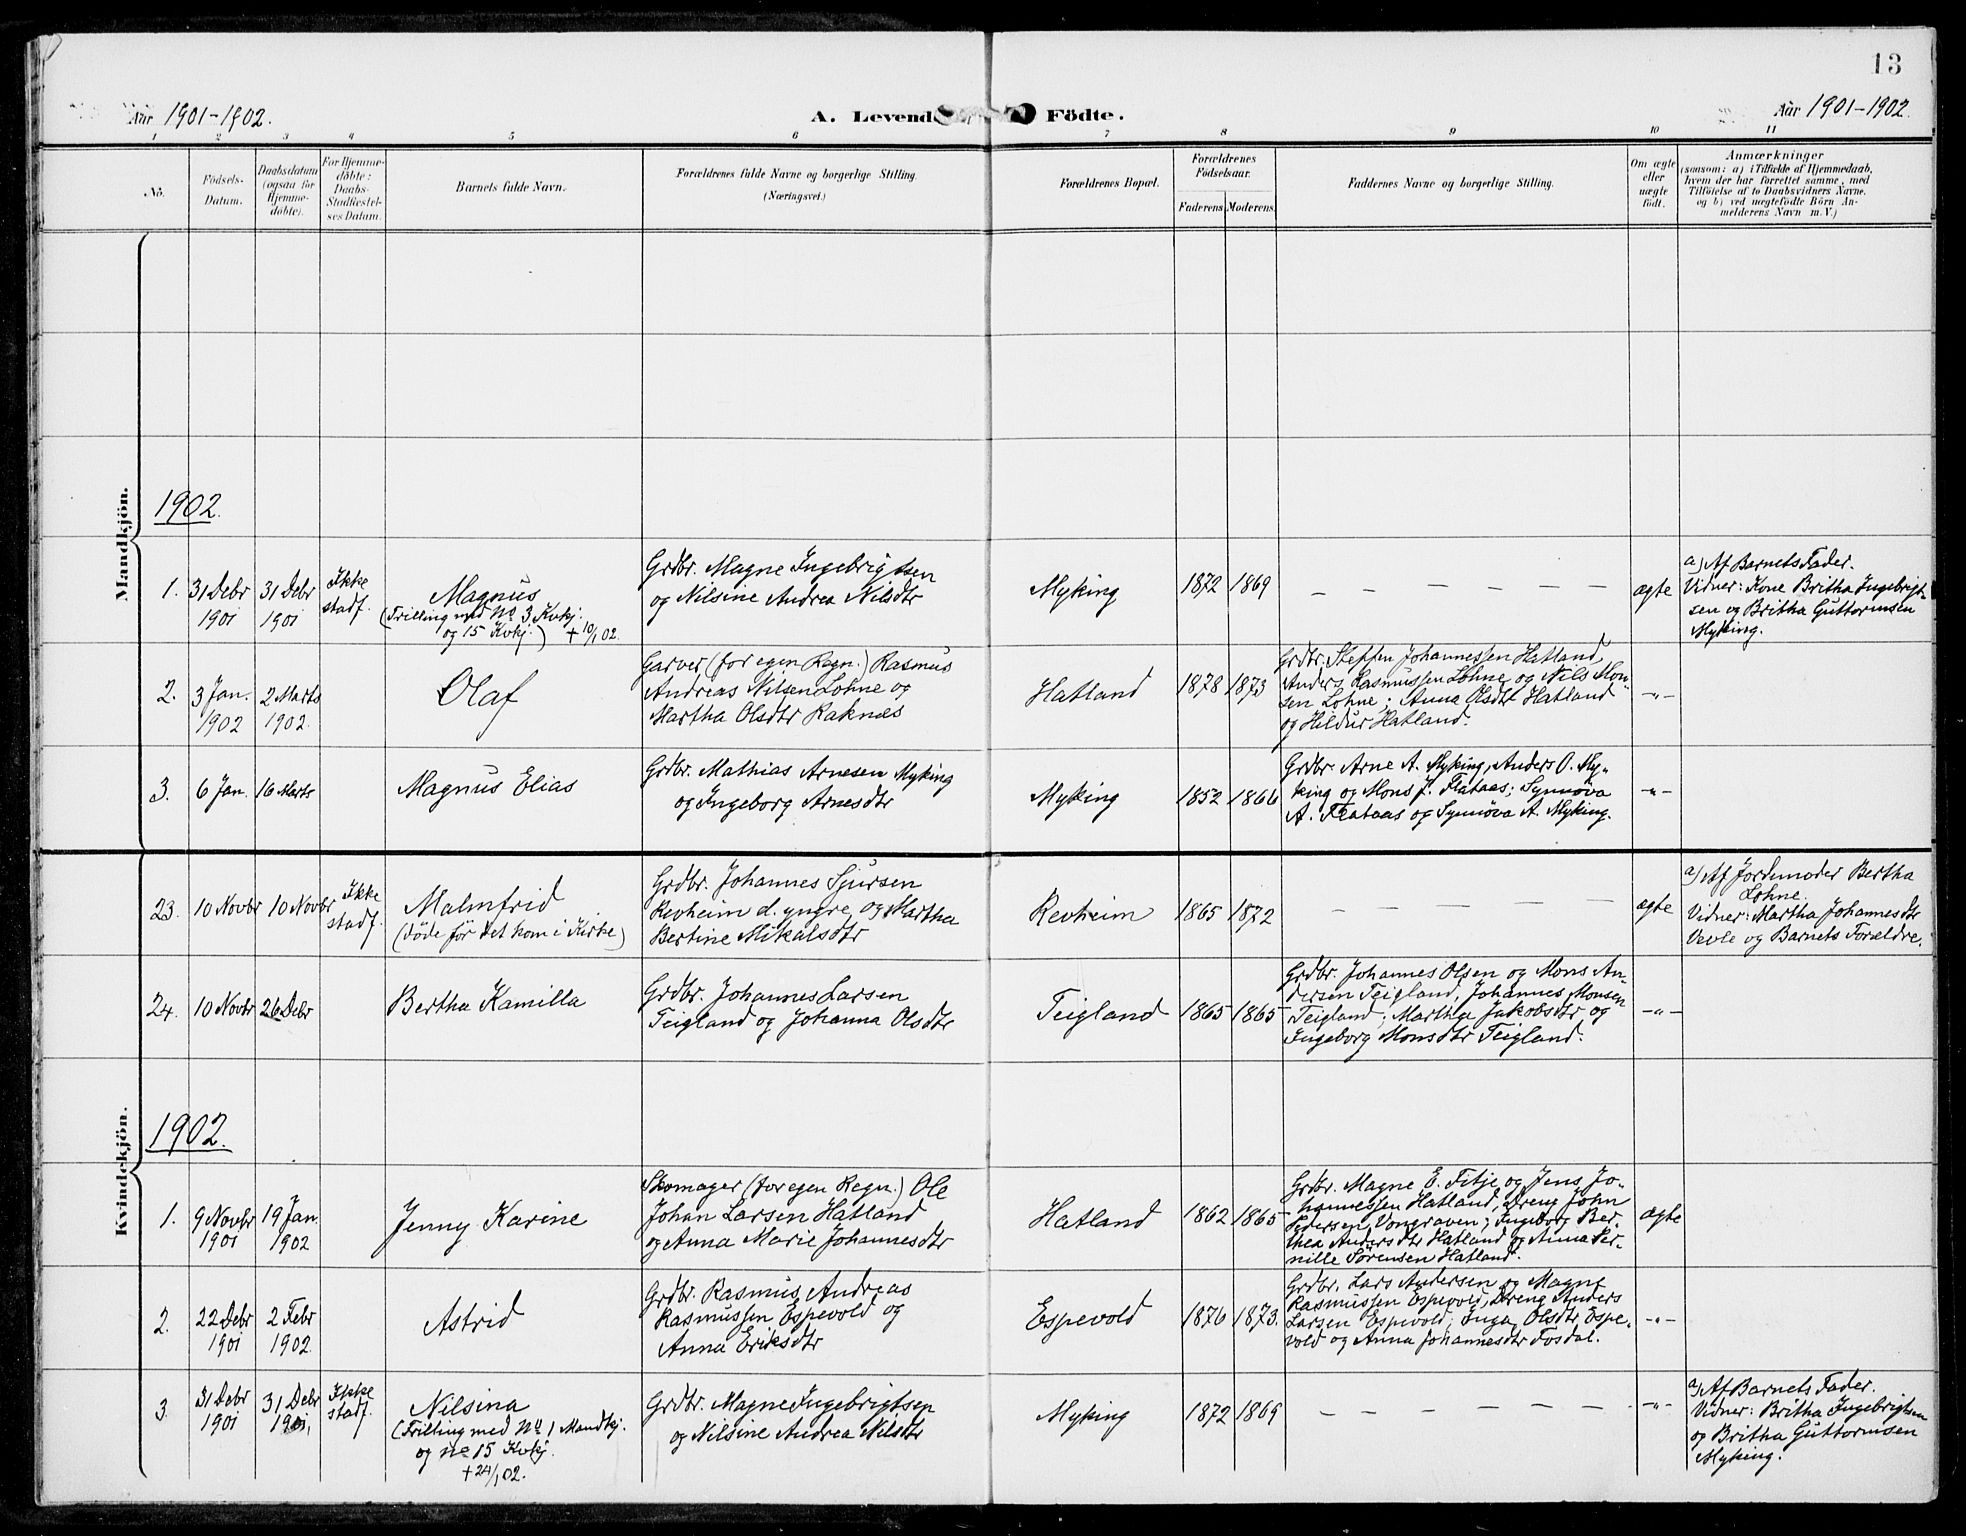 13
Aar 1901-1902.
A. Levende Födte.
Aar 1901-1902.
1 2 3 4 5 6 7 8 9 10 11
No.
Födsels-
Datum.
Daabsdatum
(ogsaa for
Hjemme-
döbte).
For Hjemme-
döbte:
Daabs-
Stadfæstel-
ses Datum.
Barnets fulde Navn.
Forældrenes fulde Navne og borgerlige Stilling.
(Næringsvei.)
Forældrenes Bopæl.
Forældrenes
Födselsaar.
Faderens. Moderens.
Faddernes Navne og borgerlige Stilling.
Om ægte
eller
uægte
födt.
Anmærkninger
(saasom: a) i Tilfælde af Hjemmedaab,
hvem der har forrettet samme, med
Tilföielse af to Daabsvidners Navne,
og b) ved uægtefödte Börn An-
melderens Navn m. V.)
Mandkjön.
1902.
1.
31 Debr
1901
31 Debr
1901
Ikke
stadf.
Magnus
(Trilling med No 3 Kvkj.
og 15 Kvkj.) + 10/1 02.
Grdbr. Magne Ingebrigtsen
og Nilsine Andrea Nilsdtr
Myking
1872 1869
— — — — — —
ægte
a) Af Barnets Fader.
Vidner: Kone Britha Ingebrigt-
sen og Britha Guttormsen
Myking.
2.
3 Jan.
1902
2 Marts
1902.
Olaf
Garver (for egen Regn.) Rasmus
Andreas Nilsen Lohne og
Martha Olsdtr Raknæs
Hatland
1878 1873
Grdbr. Steffen Johannessen Hatland,
Anders Rasmussen Lohne og Nils Mon-
sen Lohne; Anna Olsdtr Hatland
og Hildur Hatland.
-"-
3.
6 Jan.
16 Marts
Magnus Elias
Grdbr. Mathias Arnesen Myking
og Ingeborg Arnesdtr
Myking
1852 1866
Grdbr. Arne A. Myking, Anders O. My-
king og Mons J. Flataas; Synnøva
A. Flataas og Synnøva A. Myking.
-"-
Kvindekjön.
23.
10 Novbr
10 Novbr
Ikke
stadf.
Malmfrid
(døde før det kom i Kirke)
Grdbr. Johannes Sjursen
Revheim d. yngre og Martha
Bertine Mikalsdtr
Revheim
1865 1872
— — — — — —
ægte
a) Af Jordemoder Bertha
Lohne.
Vidner: Martha Johannesdtr
Vevle og Barnets Forældre.
24.
10 Novbr
26 Debr
Bertha Kamilla
Grdbr. Johannes Larsen
Teigland og Johanna Olsdtr
Teigland
1865 1865
Grdbr. Johannes Olsen og Mons An-
dersen Teigland, Johannes Monsen
Teigland; Martha Jakobsdtr og
Ingeborg Monsdtr Teigland.
-"-
1902.
1.
9 Novbr
1901
19 Jan.
1902
Jenny Karine
Skomager (for egen Regn.) Ole
Johan Larsen Hatland
og Anna Marie Johannesdtr
Hatland
1862 1865
Grdbr. Magne E. Fitje og Jens Jo-
hannessen Hatland, Dreng John
Pedersen Vongraven; Ingeborg Ber-
thea Andersdtr Hatland og Anna Per-
nille Sørensen Hatland.
ægte
2.
22 Debr
1901
2 Febr
1902.
Astrid
Grdbr. Rasmus Andreas
Rasmussen Espevold og
Anna Eriksdtr
Espevold
1876 1873.
Grdbr. Lars Andersen og Magne
Rasmussen Espevold, Dreng Anders
Larsen Espevold; Inga Olsdtr Espe-
vold og Anna Johannesdtr Fosdal.
-"-
3.
31 Debr
1901
31 Debr
1901,
Ikke
stadf.
Nilsina
(Trilling med No 1 Mandkj.
og No 15 Kvkj.
+ 24/1 02.
Grdbr. Magne Ingebrigtsen
og Nilsine Andrea Nilsdtr
Myking
1872 1869
— — — — — —
-"-
a) Af Barnets Fader.
Vidner: Britha Ingebrigtsen
og Britha Guttormsen
Myking.